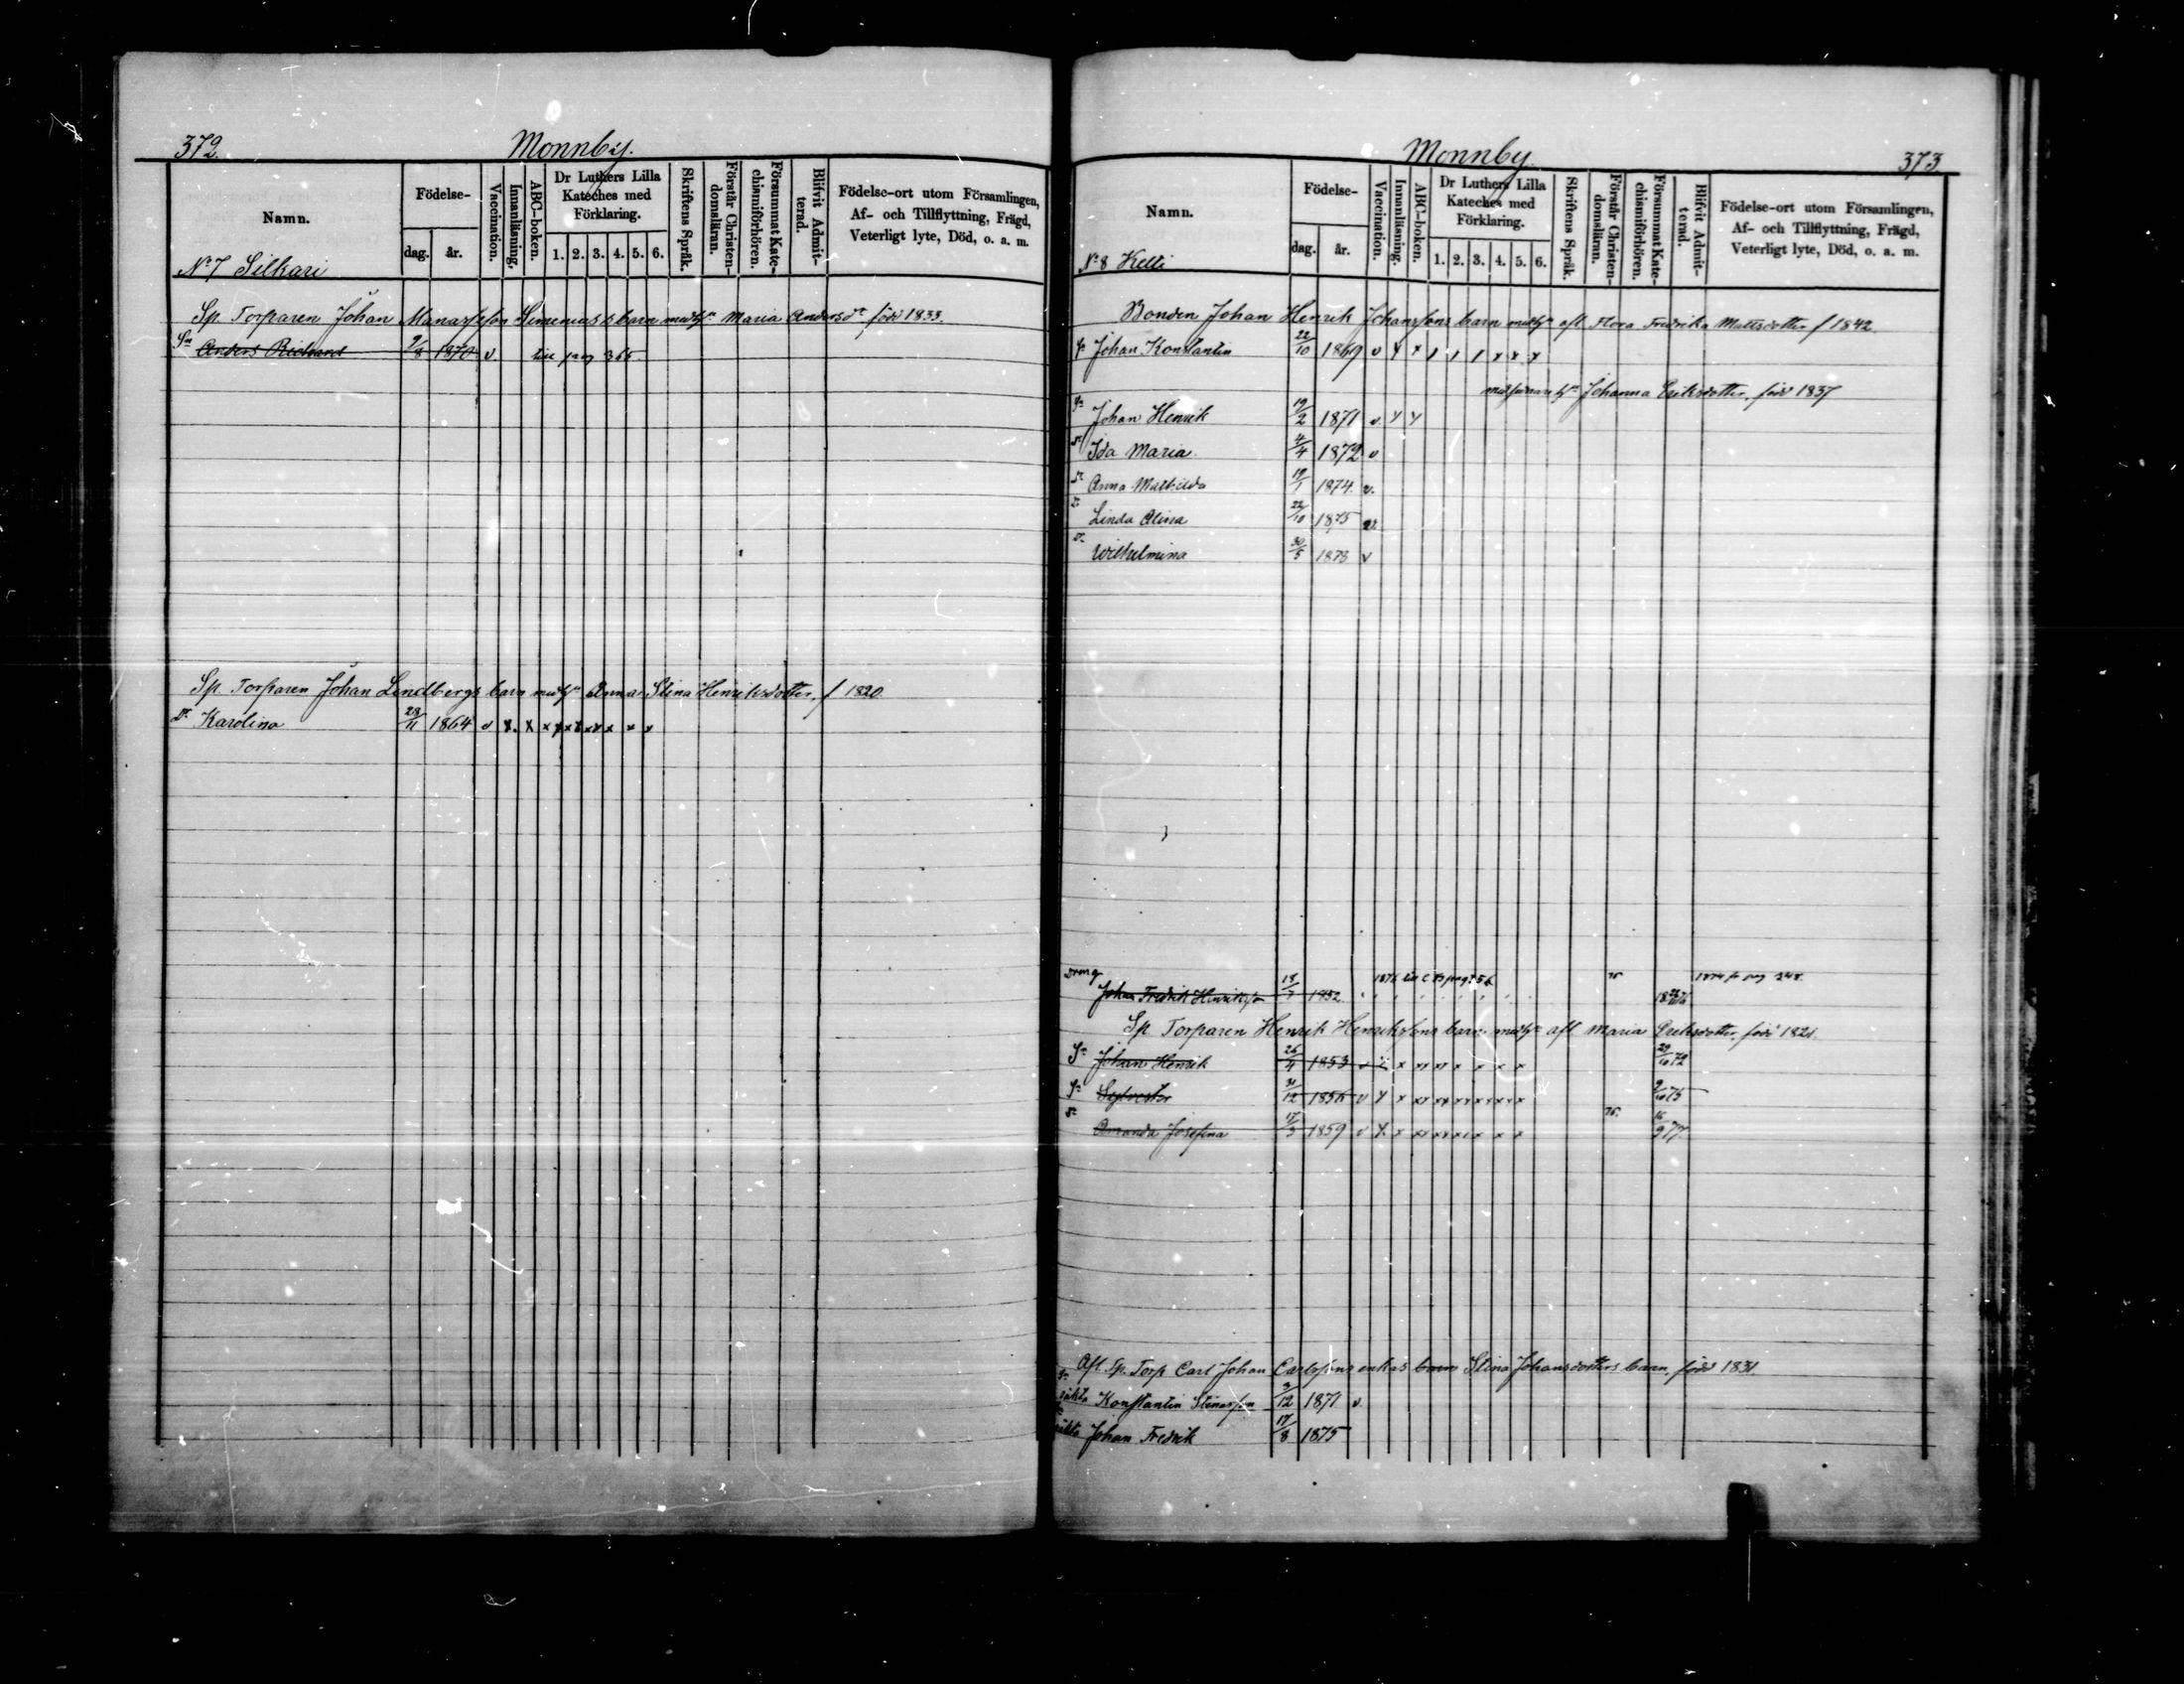 372. Monnby.
Namn. Födelse- dag. år. Vaccination. Innanläsning. ABC-boken. Dr Luthers Lilla Kateches med Förklaring. 1. 2. 3. 4. 5. 6. Skriftens Språk. Förstår Christendomsläran. Försummat Katechismiförhören. Blifvit Admitterad. Födelse-ort utom Församlingen, Af- och Tillflyttning, Frägd, Veterligt lyte, Död, o. a. m.
No 7 Silkari
Sp. Torparen Johan Manasseson Simenius's barn medh Maria Andersdr född 1833.
Sn Anders Richard 9/8 1870 v. till pag 366
Sp. Torparen Johan Lindbergs barn medh Anna Stina Henriksdotter, f 1820
Dr Karolina 28/11 1864 v x. x x x x x x x x x x
Monnby. 373
Namn. Födelse- dag. år. Vaccination. Innanläsning. ABC-boken. Dr Luthers Lilla Kateches med Förklaring. 1. 2. 3. 4. 5. 6. Skriftens Språk. Förstår Christendomsläran. Försummat Katechismiförhören. Blifvit Admitterad. Födelse-ort utom Församlingen, Af- och Tillflyttning, Frägd, Veterligt lyte, Död, o. a. m.
No 8 Kelli
Bonden Johan Henrik Johanssons barn medh afl. Flora Fredrika Mattsdotter f 1842
Sn Johan Konstantin 22/10 1869 v x x / / / x x x
Johanna Eriksdotter, född 1837
Sn Johan Henrik 19/2 1871 v. x x
Dr Ida Maria 4/4 1872 v
Dr Anna Mathilda 19/1 1874 v.
Dr Linda Alina 22/10 1875 v.
Dr Wilhelmina 30/5 1873 v
Dreng Johan Fredrik Henriksson 18/7 1852 76 1874 fr pag 248
Sp Torparen Henrik Henrikssons barn medh afl Maria Eriksdotter, född 1821.
Sn Johan Henrik 26/4 1853 v x x xx xx x x x x 29/10 72
Sn Sylvester 31/12 1856 v x x xx xx xx xx x x 9/10 75
Dr Amanda Josefina 17/3 1859 v x x xx xx xx x x x 76. 16/9 77
Afl. Sp. Torp Carl Johan Carlssons enkas barn Stina Johansdotters barn, född 1831.
Sn Konstantin Stinasson 3/12 1871 v.
Johan Fredrik 17/8 1875